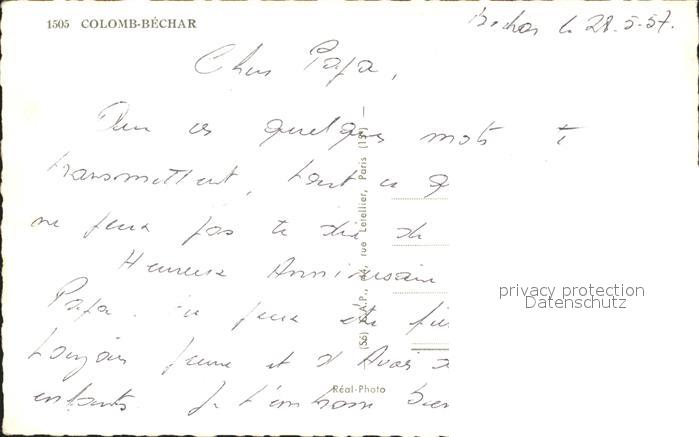 1505 COLOMB-BÉCHAR
Bechar le 28-5-57.
Cher Papa,
Que ces quelques mots te
transmettent, tout ce q
ne peux pas te dire de
Heureux Anniversaire
Papa. tu peux être fier
toujours jeune et d'Avoir d
enfants. Je t'embrasse bien
(S6) C.A.P., rue Letellier, Paris (15e)
Réal-Photo
privacy protection
Datenschutz